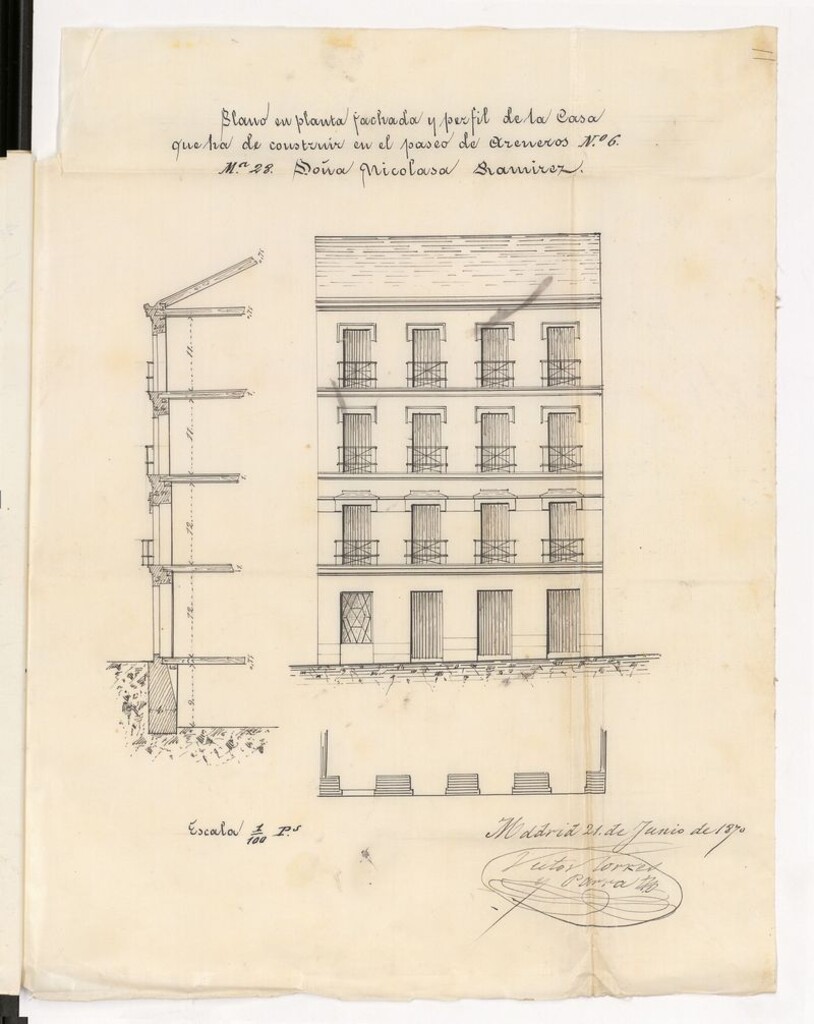 Plano en planta fachada y perfil de la Casa
que ha de construir en el paseo de Areneros N.º 6.
M.ª 28. Doña Nicolasa Ramirez.
11
11
12
12
9
Escala 1/100 P.s
Madrid 21. de Junio de 1870
Victor Torres
y Parra